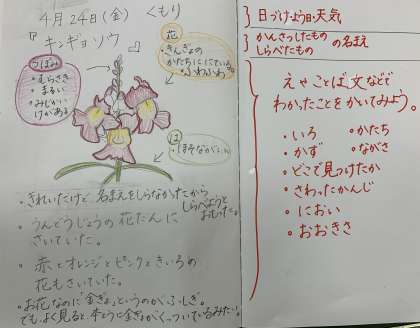 4月24日(金) くもり
『キンギョソウ』
つぼみ
・むらさき
・まるい
・みじかい
けがある
花
・きんぎょの
かたちににている
・ふわふわ
は
・ほそながい
・きれいだけど、名まえをしらなかったから
しらべようと
おもった。
・うんどうじょうの花だんに
さいていた。
・赤とオレンジとピンクときいろの
花もさいていた。
・お花なのに"金ぎょ"というのがふしぎ。
でも、よく見ると、本とうに金ぎょがくっついているみたい!
日づけ・よう日・天気
かんさつしたもの
しらべたもの
の名まえ
えやことば、文などで
わかったことをかいてみよう。
・いろ
・かたち
・かず
・ながさ
・どこで見つけたか
・さわったかんじ
・におい
・おおきさ